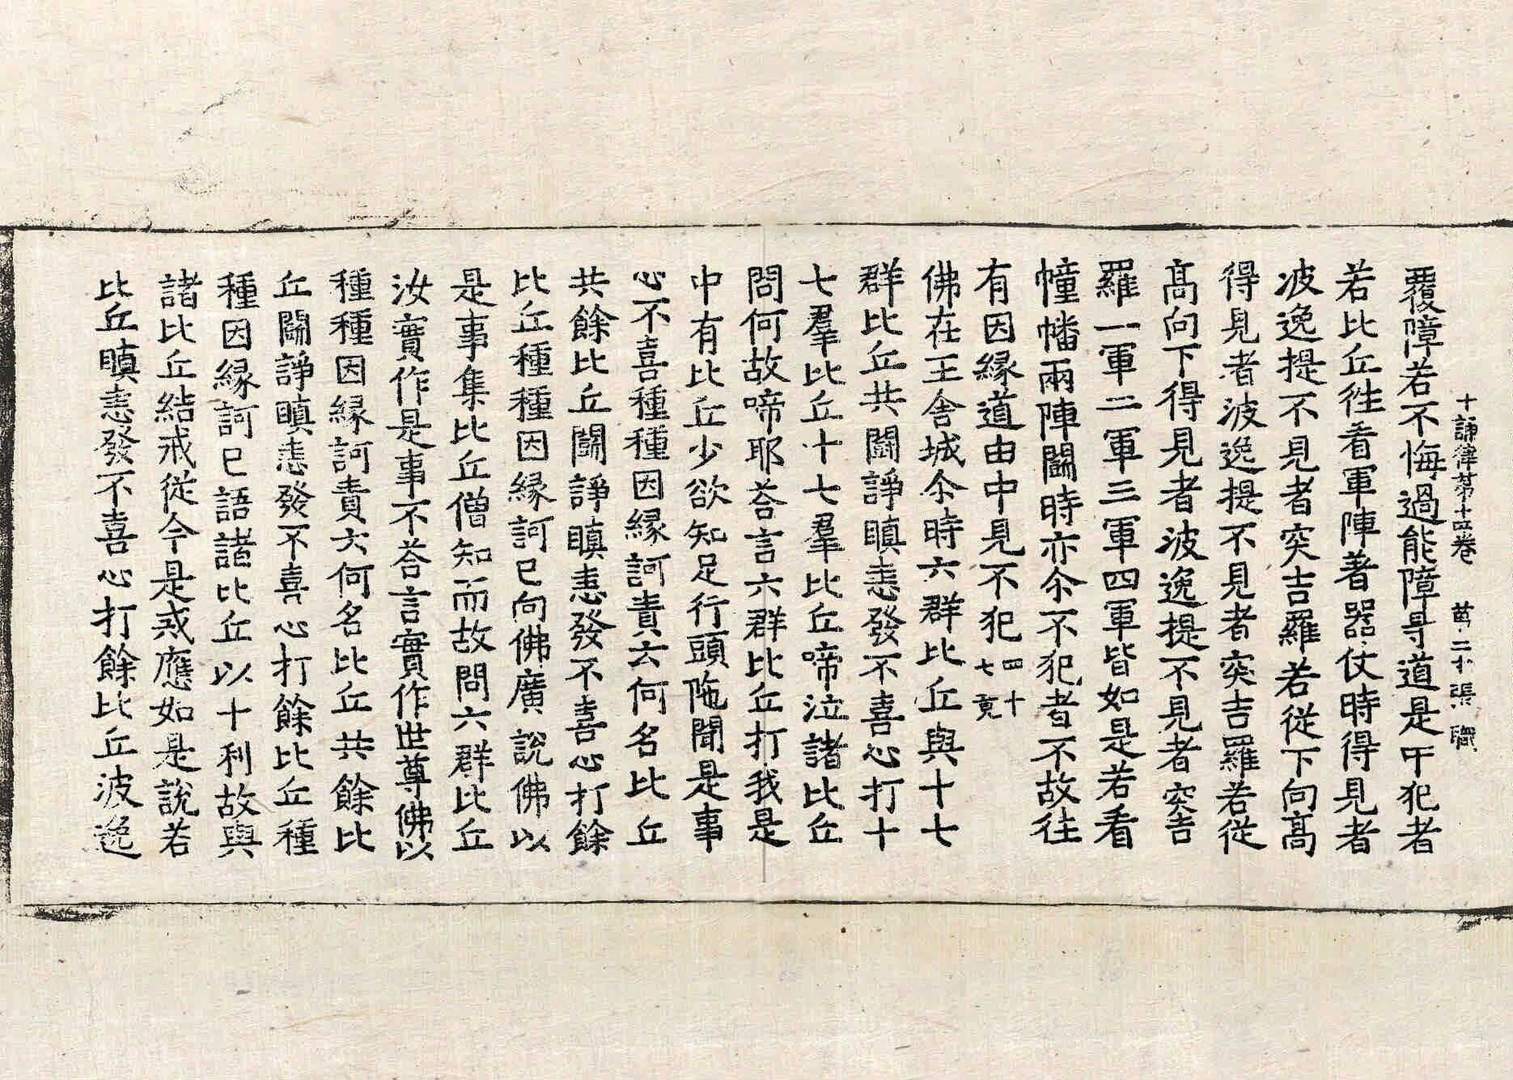 十誦律第十四卷 第二十張 職
覆障若不悔過能障㝵道是中犯者
若比丘徃看軍陣著器仗時得見者
波逸提不見者突吉羅若從下向髙
得見者波逸提不見者突吉羅若從
髙向下得見者波逸提不見者突吉
羅一軍二軍三軍四軍皆如是若看
幢幡兩陣鬪時亦尒不犯者不故往
有因縁道由中見不犯四十七竟
佛在王舍城尒時六群比丘與十七
群比丘共鬪諍瞋恚發不喜心打十
七羣比丘十七羣比丘啼泣諸比丘
問何故啼耶荅言六群比丘打我是
中有比丘少欲知足行頭陁聞是事
心不喜種種因縁訶責云何名比丘
共餘比丘鬪諍瞋恚發不喜心打餘
比丘種種因縁訶已向佛廣說佛以
是事集比丘僧知而故問六群比丘
汝實作是事不荅言實作世尊佛以
種種因縁訶責云何名比丘共餘比
丘鬪諍瞋恚發不喜心打餘比丘種
種因縁訶已語諸比丘以十利故與
諸比丘結戒從今是戒應如是說若
比丘瞋恚發不喜心打餘比丘波逸